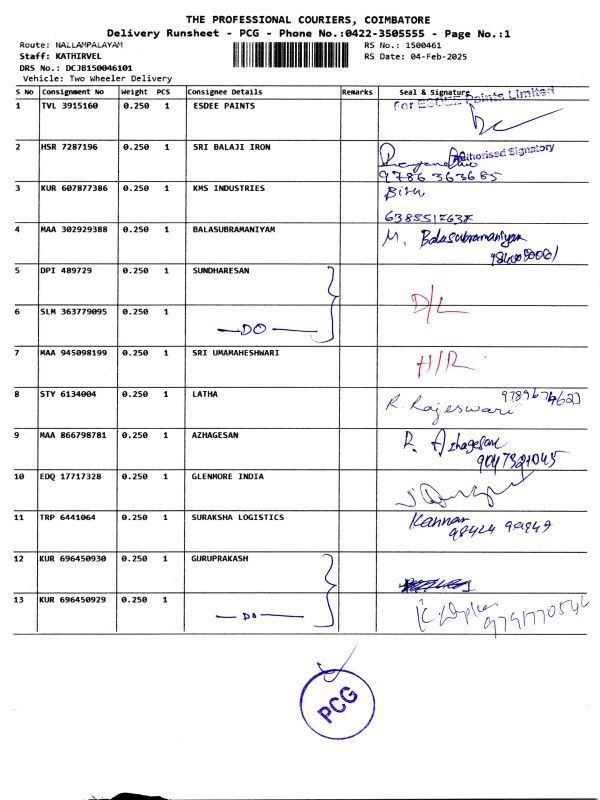 THE PROFESSIONAL COURIERS, COIMBATORE
Delivery Runsheet - PCG - Phone No.:0422-3505555 - Page No.:1
Route: NALLAMPALAYAM RS No.: 1500461
Staff: KATHIRVEL RS Date: 04-Feb-2025
DRS No.: DCJB150046101
Vehicle: Two Wheeler Delivery
S No Consignment No Weight PCS Consignee Details Remarks Seal & Signature
For ESDEE Paints Limited
1 TVL 3915160 0.250 1 ESDEE PAINTS
2 HSR 7287196 0.250 1 SRI BALAJI IRON
Authorised Signatory
9786 363685
3 KUR 607877386 0.250 1 KMS INDUSTRIES
4 MAA 302929388 0.250 1 BALASUBRAMANIYAM M. Balasubramaniyam
5 DPI 489729 0.250 1 SUNDHARESAN
D/L
6 SLM 363779095 0.250 1
—DO—
7 MAA 945098199 0.250 1 SRI UMAMAHESHWARI H/R
8 STY 6134004 0.250 1 LATHA
R. Rajeswari
9 MAA 866798781 0.250 1 AZHAGESAN R. Azhagesan
9047321045
10 EDQ 17717328 0.250 1 GLENMORE INDIA
11 TRP 6441064 0.250 1 SURAKSHA LOGISTICS Kannan
98424 99849
12 KUR 696450930 0.250 1 GURUPRAKASH
13 KUR 696450929 0.250 1
—DO—
PCG